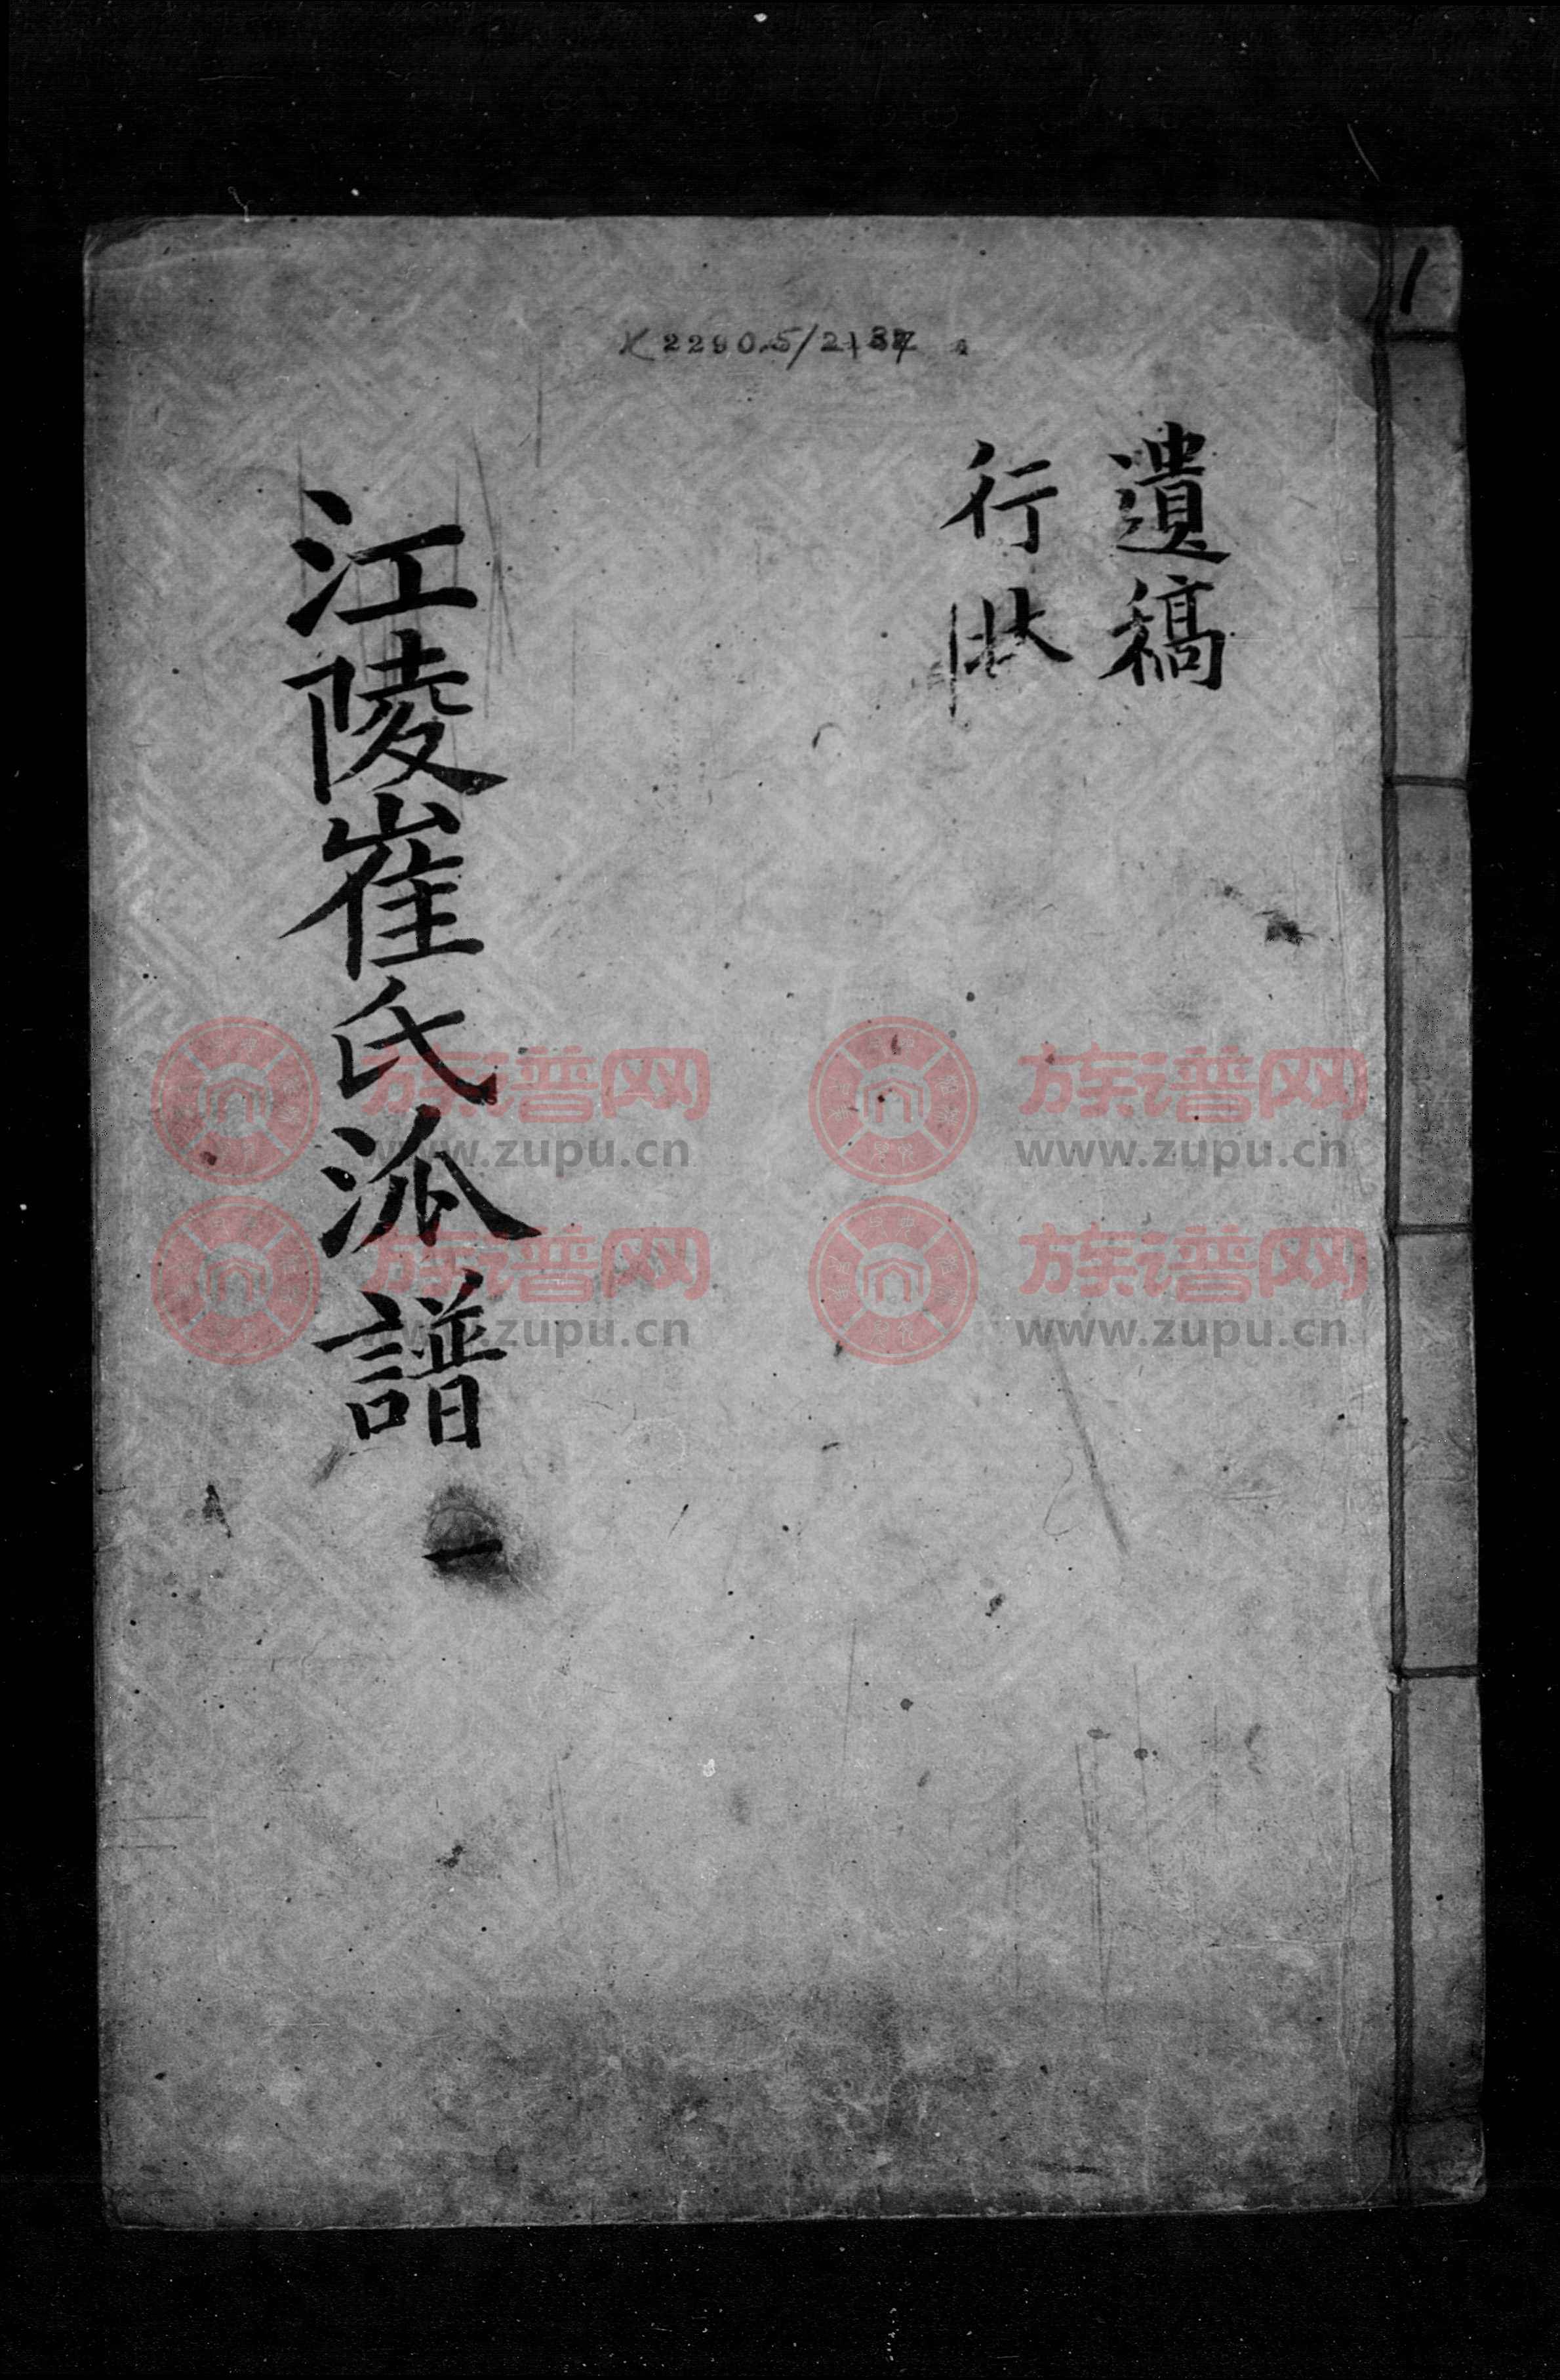 1
K2290.5/2137
遺稿
行狀
江陵崔氏派譜
一
族谱网
www.zupu.cn
族谱网
www.zupu.cn
族谱网
www.zupu.cn
族谱网
www.zupu.cn